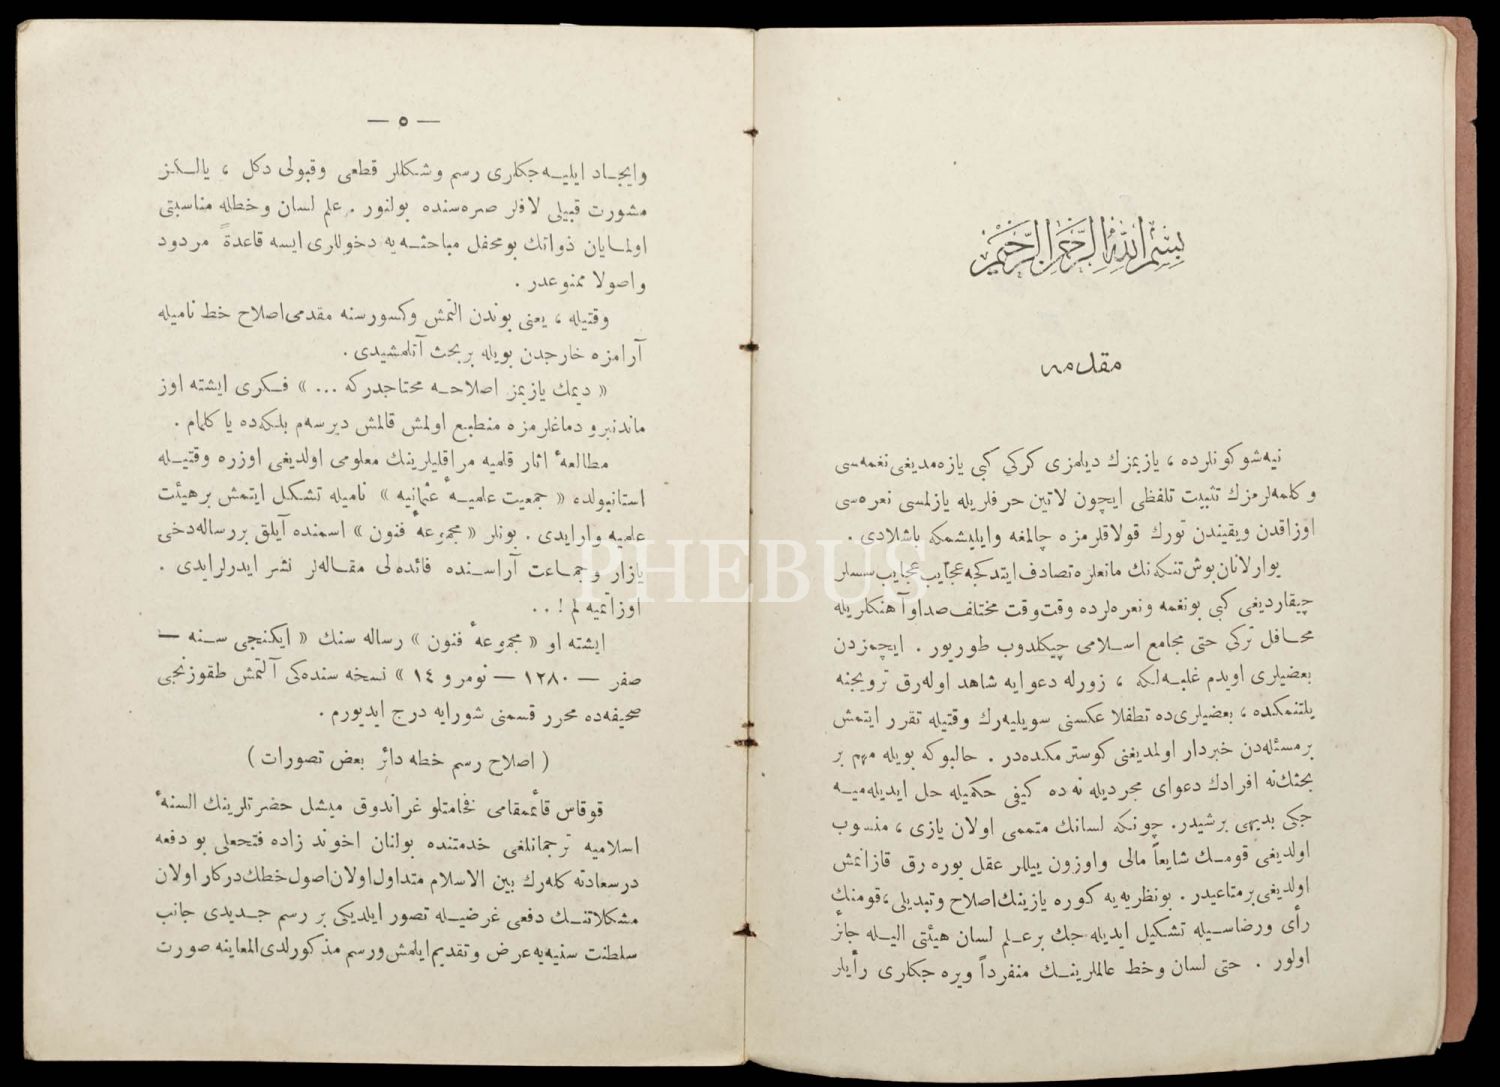 بسم الله الرحمن الرحيم
مقدمه
نیه‌شو كونلرده ، یازیمزك دیلمزی كركی كبی یازه‌مدیغی نغمه‌سی
وكلمه‌لرمزك تثبیت تلفظی ایچون لاتین حرفلریله یازلمسی نعره‌سی
اوزاقدن ویقیندن تورك قولاقلرمزه چالمغه وایلیشمكه باشلادی .
یوارلانان بوش تنكه‌نك مانعلره تصادف ایتدكجه عجایب عجایب سسلر
چیقاردیغی كبی بونغمه ونعره‌لرده وقت وقت مختلف صدا وآهنكلریله
محافل تركی حتی مجامع اسلامی چیكلدوب طوریور . ایچمزدن
بعضیلری اویدم غلبه‌لكه ، زورله دعوایه شاهد اوله‌رق ترویجنه
یلتنمكده ، بعضیلری‌ده تطفلا عكسنی سویلیه‌رك وقتیله تقرر ایتمش
برمسئله‌دن خبردار اولمدیغنی كوسترمكده‌در . حالبوكه بویله مهم بر
بحثك‌نه افرادك دعوای مجردیله نه‌ده كیفی حكمیله حل ایدیله‌میه
جكی بدیهی برشیدر. چونكه لسانك متممی اولان یازی ، منسوب
اولدیغی قومك شایعاً مالی واوزون ییللر عقل یوره رق قازانمش
اولدیغی برمتاعیدر . بونظریه‌یه كوره یازینك اصلاح وتبدیلی ، قومنك
رأی ورضاسیله تشكیل ایدیله‌جك برعلم لسان هیئتی الیله جائز
اولور . حتی لسان وخط عالملرینك منفرداً ویره جكلری رأیلر
— ٥ —
وایجاد ایلیه‌جكلری رسم وشكللر قطعی وقبولی دكل ، یالكز
مشورت قبیلی لافلر صره‌سنده بولنور . علم لسان وخطله مناسبتی
اولمایان ذواتك بومحفل مباحثه‌یه دخوللری ایسه قاعدةً مردود
واصولا ممنوعدر .
وقتیله ، یعنی بوندن التمش وكسور سنه مقدمی اصلاح خط نامیله
آرامزه خارجدن بویله بربحث آتلمشیدی .
« دیمك یازیمز اصلاحه محتاجدركه ... » فكری ایشته اوز
ماندنبرو دماغلرمزه منطبع اولمش قالمش دیرسه‌م بلكه‌ده یا كلمام .
مطالعهٔ اثار قلمیه مراقلیلرینك معلومی اولدیغی اوزره وقتیله
استانبولده « جمعیت علمیهٔ عثمانیه » نامیله تشكل ایتمش برهیئت
علمیه وارایدی . بونلر « مجموعهٔ فنون » اسمنده آیلق بررساله‌دخی
یازار وجماعت آراسنده فائده‌لی مقاله‌لر نشر ایدرلرایدی .
اوزاتمیه لم ! ..
ایشته او « مجموعهٔ فنون » رساله سنك « ایكنجی سنه —
صفر — ١٢٨٠ — نومرو ١٤ » نسخه سنده‌كی آلتمش طقوزنجی
صحیفه‌ده محرر قسمنی شورایه درج ایدیورم .
( اصلاح رسم خطه دائر بعض تصورات )
قوقاس قائممقامی فخامتلو غراندوق میشل حضرتلرینك السنهٔ
اسلامیه ترجمانلغی خدمتنده بولنان اخوند زاده فتحعلی بو دفعه
درسعادته كله‌رك بین الاسلام متداول اولان اصول خطك دركار اولان
مشكلاتنك دفعی غرضیله تصور ایلدیكی بر رسم جدیدی جانب
سلطنت سنیه‌یه عرض وتقدیم ایلمش ورسم مذكور لدی المعاینه صورت
PHEBUS